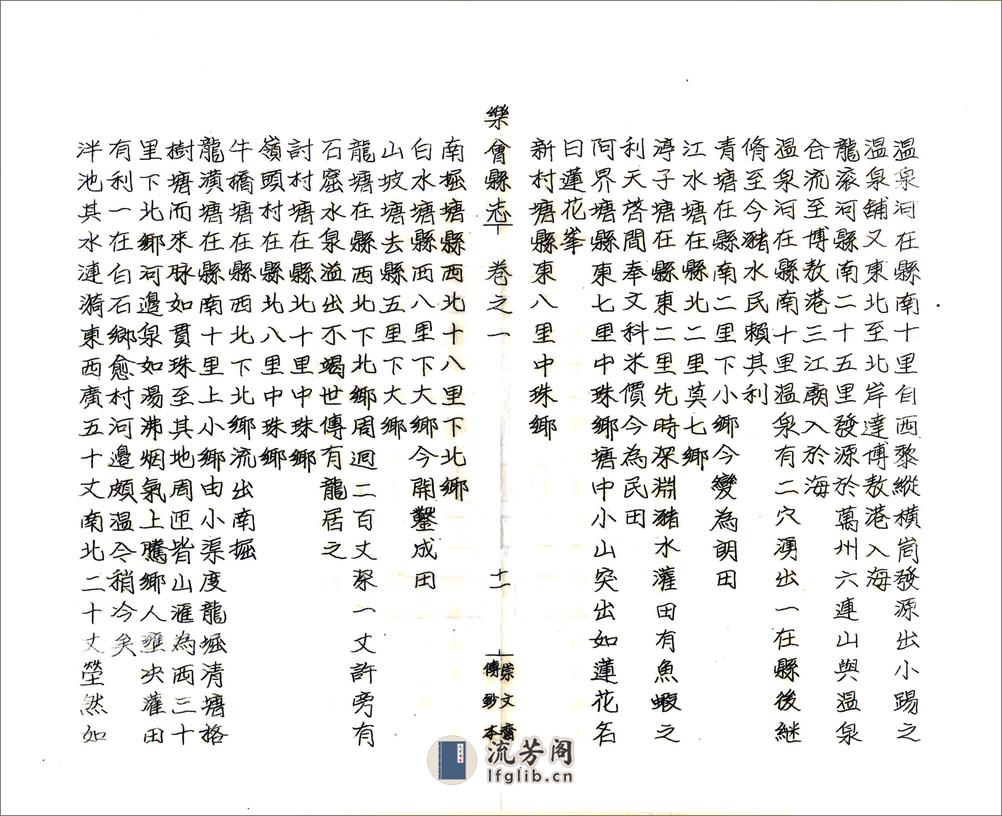 温泉河在縣南十里自西黎縱橫崗發源出小踢之
温泉鋪又東北至北岸達博敖港入海
龍滚河縣南二十五里發源於萬州六連山與温泉
合流至博敖港三江廟入於海
温泉河在縣南十里温泉有二穴湧出一在縣後継
脩至今豬水民賴其利
青塘在縣南二里下小鄉今變為明田
江水塘在縣北二里莫七鄉
渟子塘在縣東二里先時深淵豬水灌田有魚蝦之
利天啓間奉文科米價今為民田
阿界塘縣東七里中珠鄉塘中小山突出如蓮花名
曰蓮花峯
新村塘縣東八里中珠鄉
樂會縣志 卷之一 十一 崇文齋傳鈔本
南掘塘縣西北十八里下北鄉
白水塘縣西八里下大鄉今開鑿成田
山坡塘去縣五里下大鄉
龍塘在縣西北下北鄉周迴二百丈深一丈許旁有
石窟水泉溢出不竭世傳有龍居之
討村塘在縣北十里中珠鄉
嶺頭村塘縣北八里中珠鄉
牛橋塘在縣西北下北鄉流出南掘
龍潢塘在縣南十里上小鄉由小渠度龍堀清塘格
樹塘而來脉如貫珠至其地周匝皆山滙為西三十
里下北鄉河邊泉如湯沸烟氣上騰鄉人壅决灌田
有利一在白石鄉愈村河邊頗温令稍今矣
泮池其水漣漪東西廣五十丈南北二十丈塋然如
流芳阁
lfglib.cn